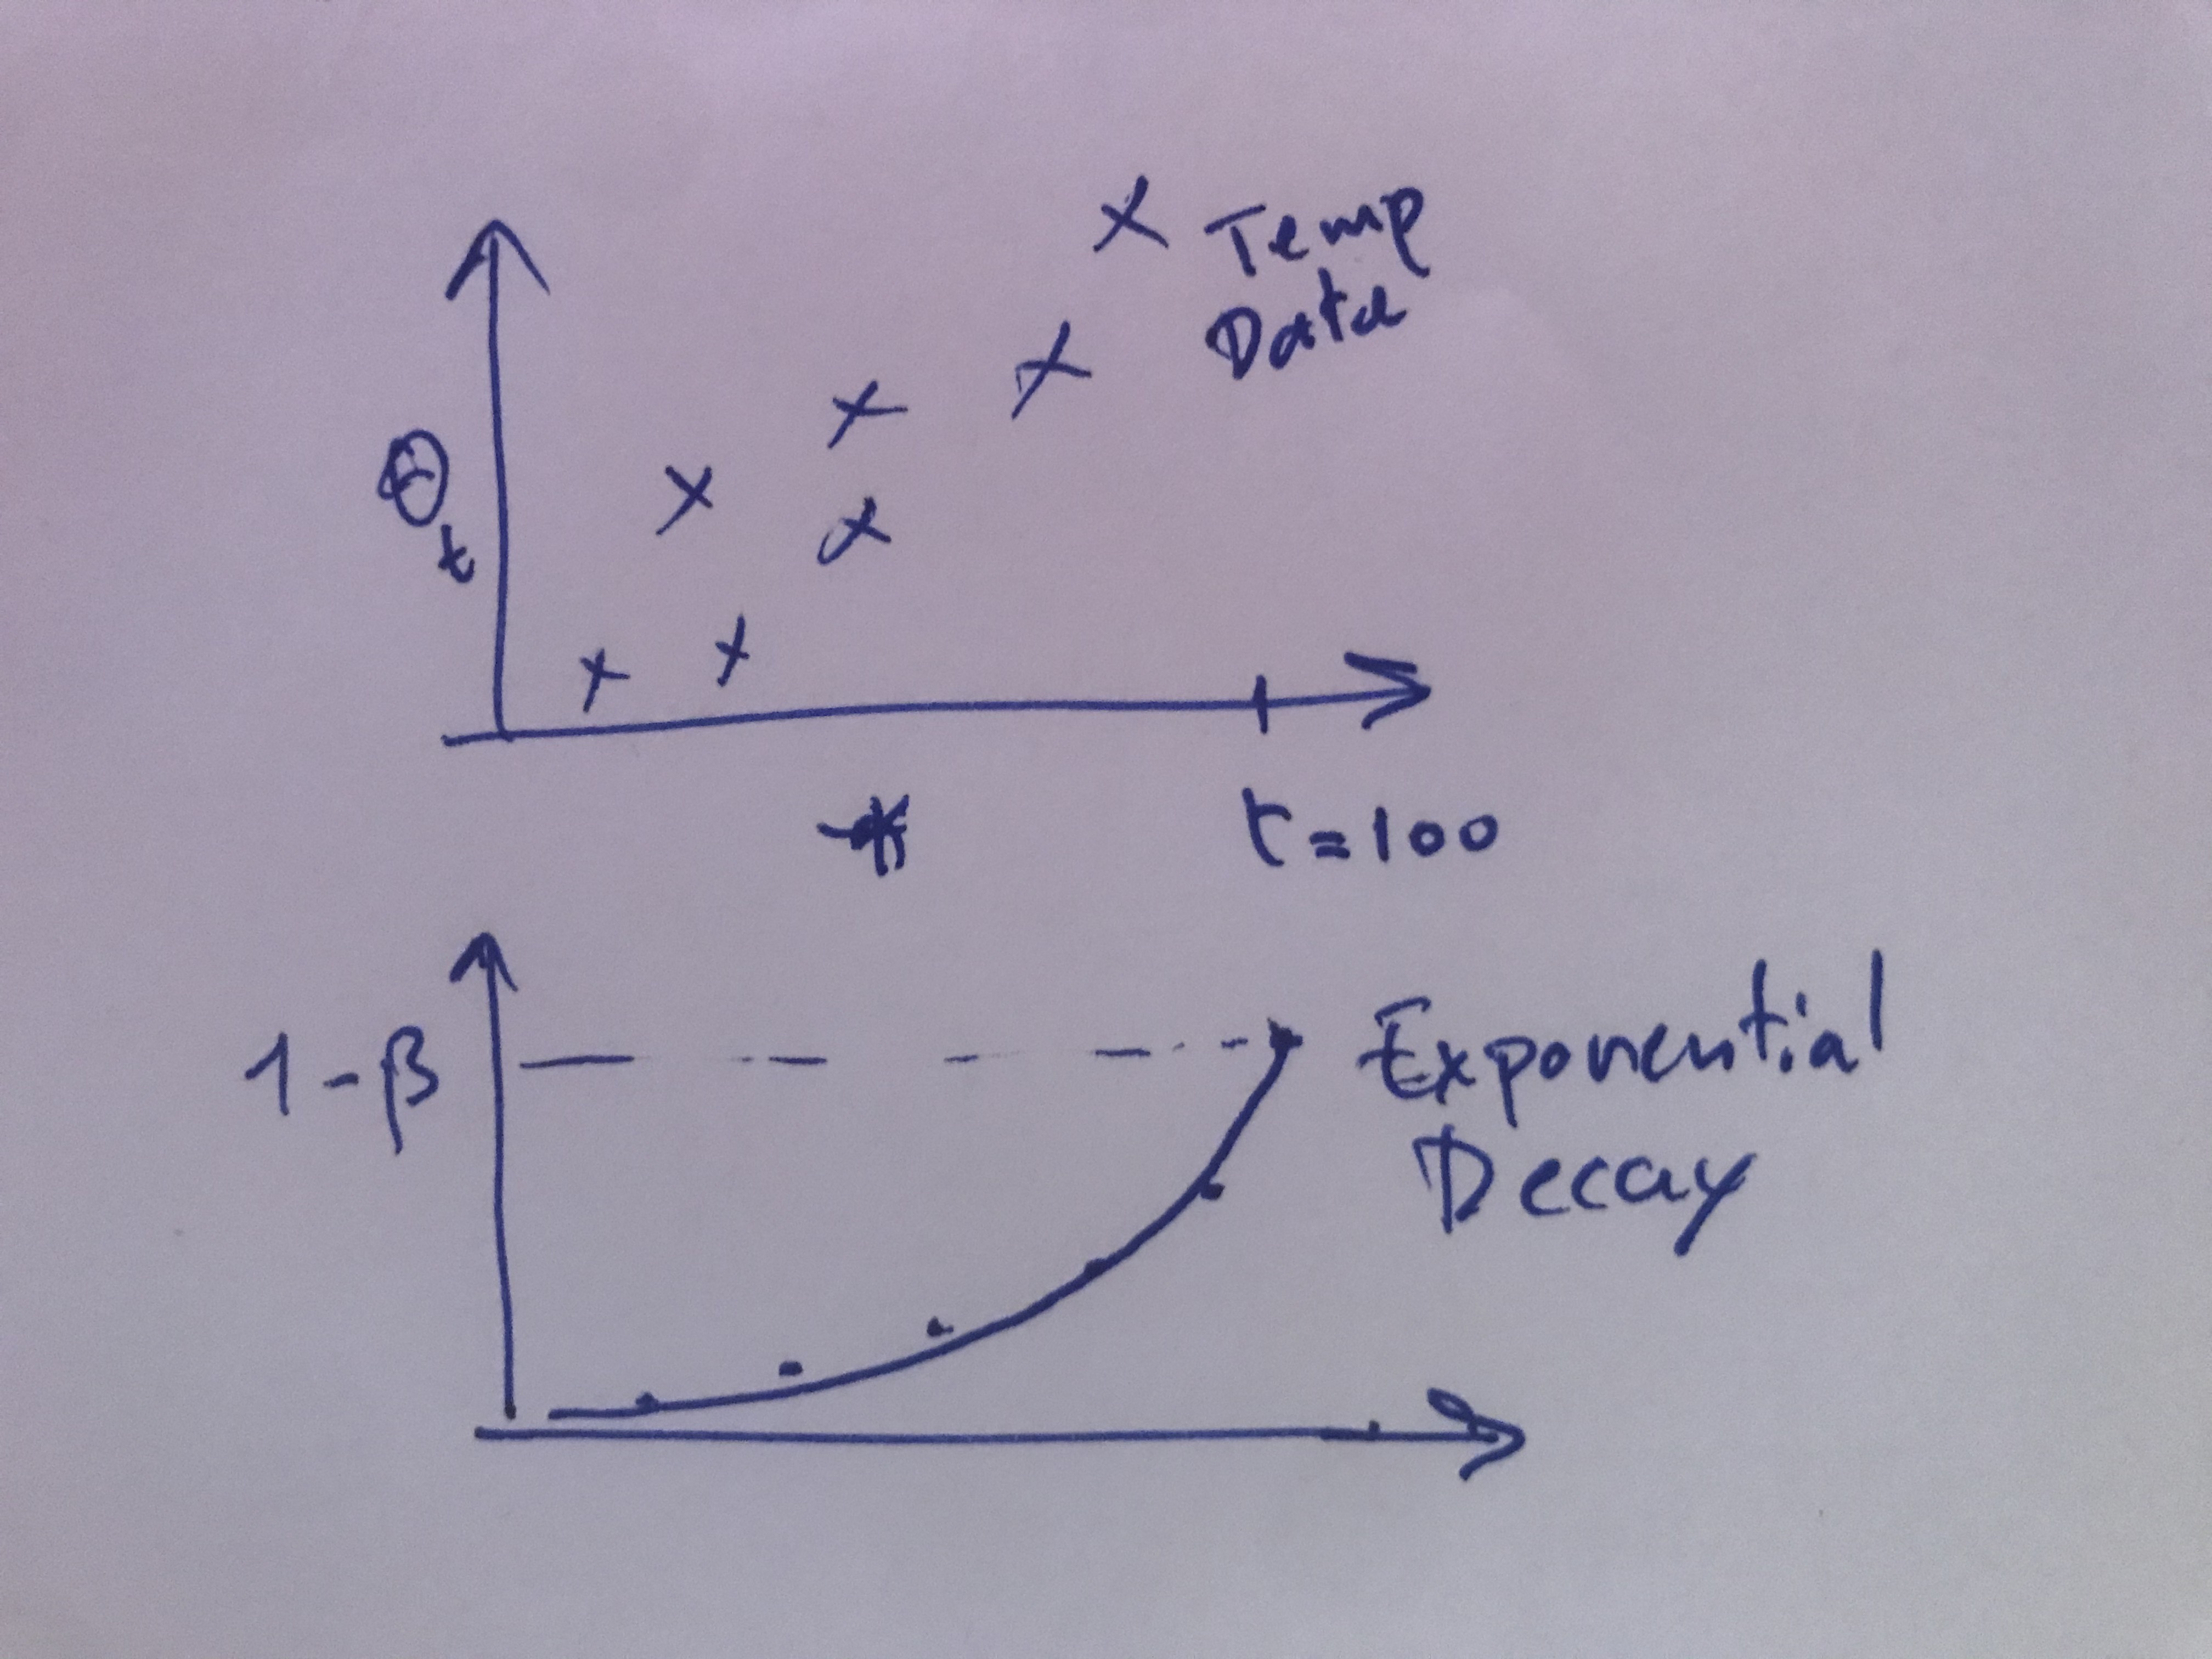 Temp
Data
θt
t=100
1-β
Exponential
Decay